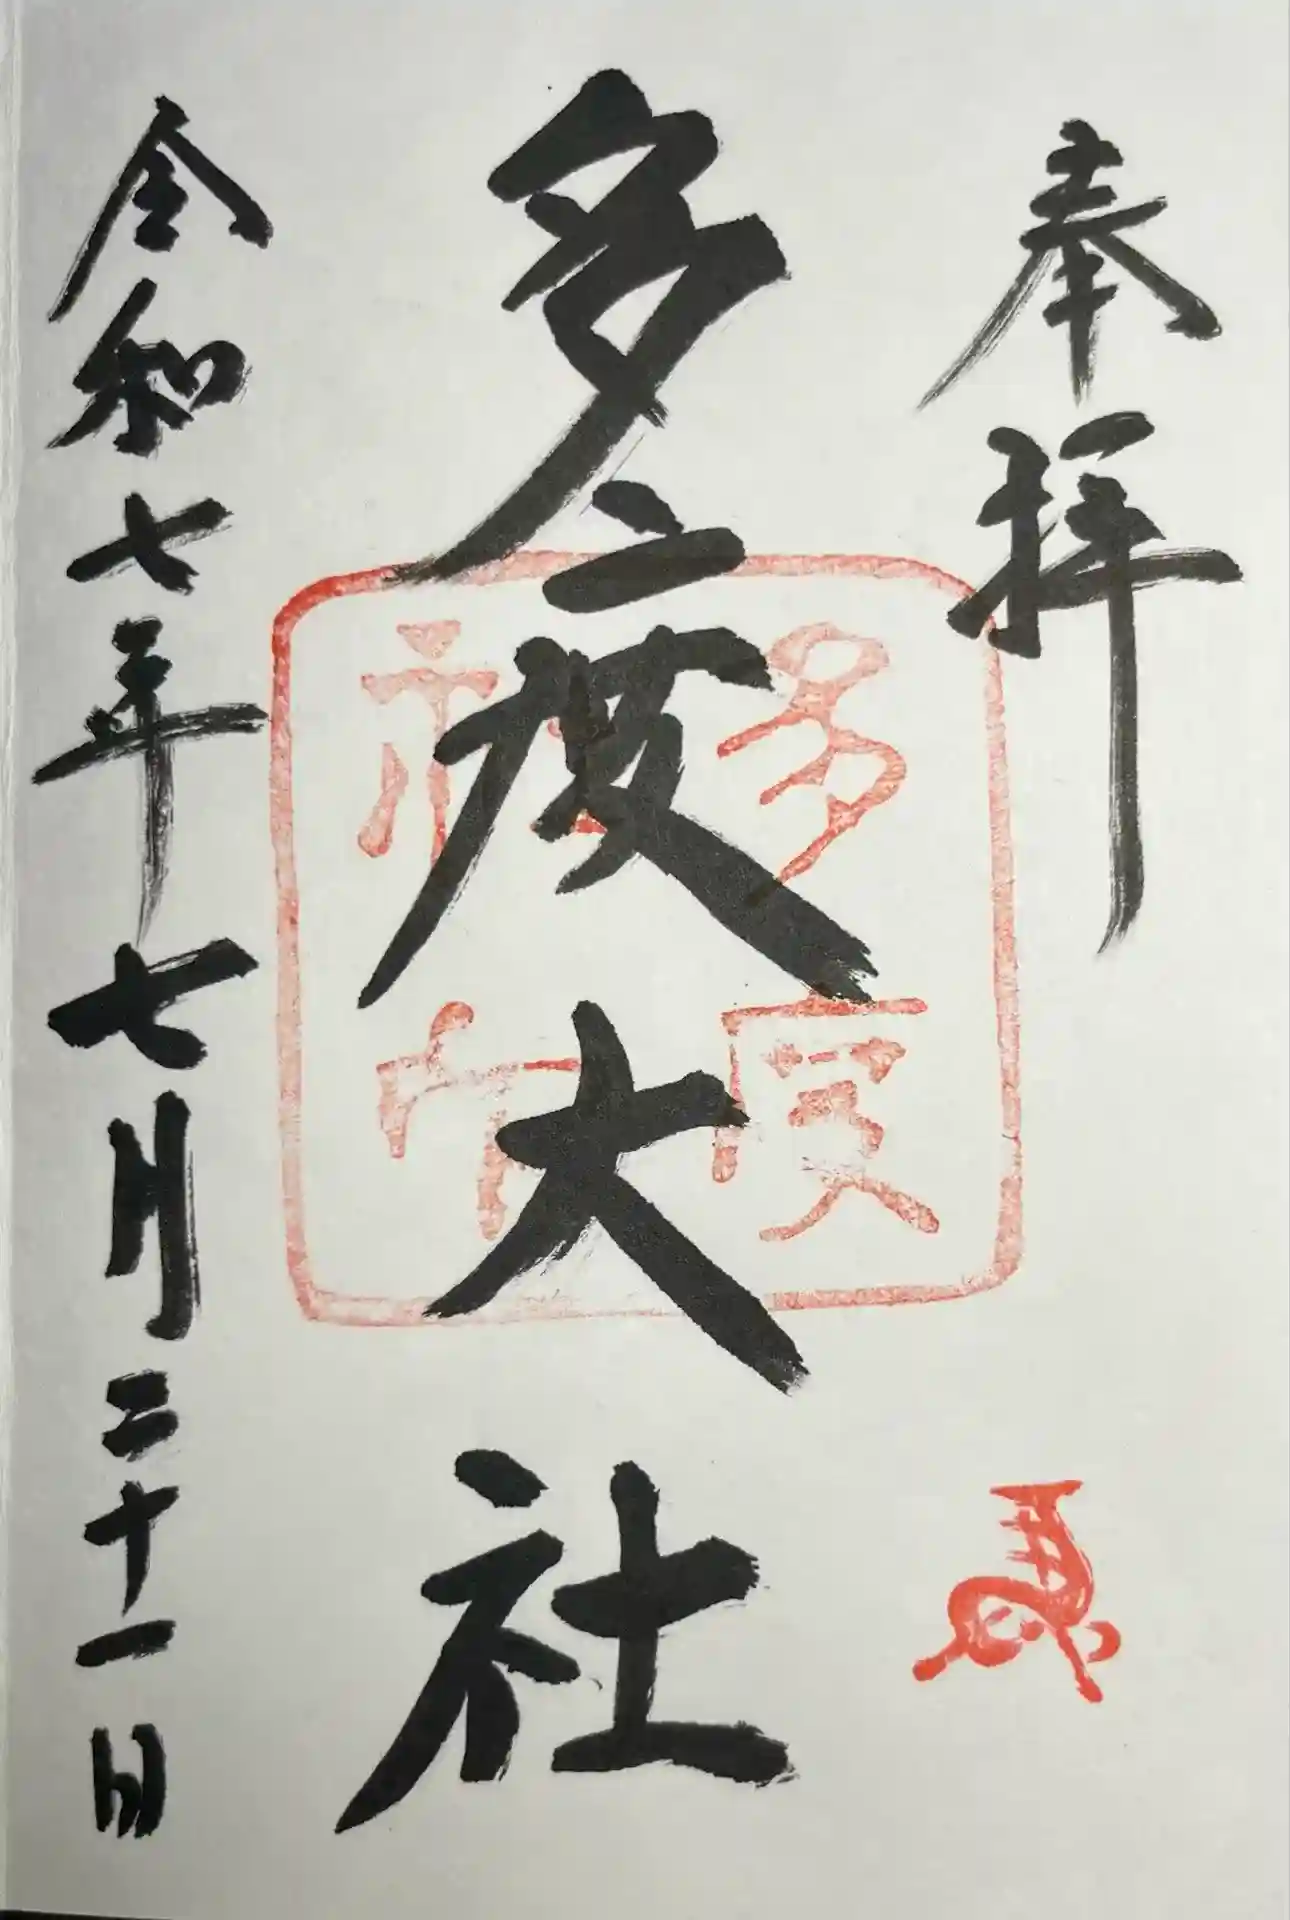 奉拝
多度大社
令和七年七月二十一日
多度
社印